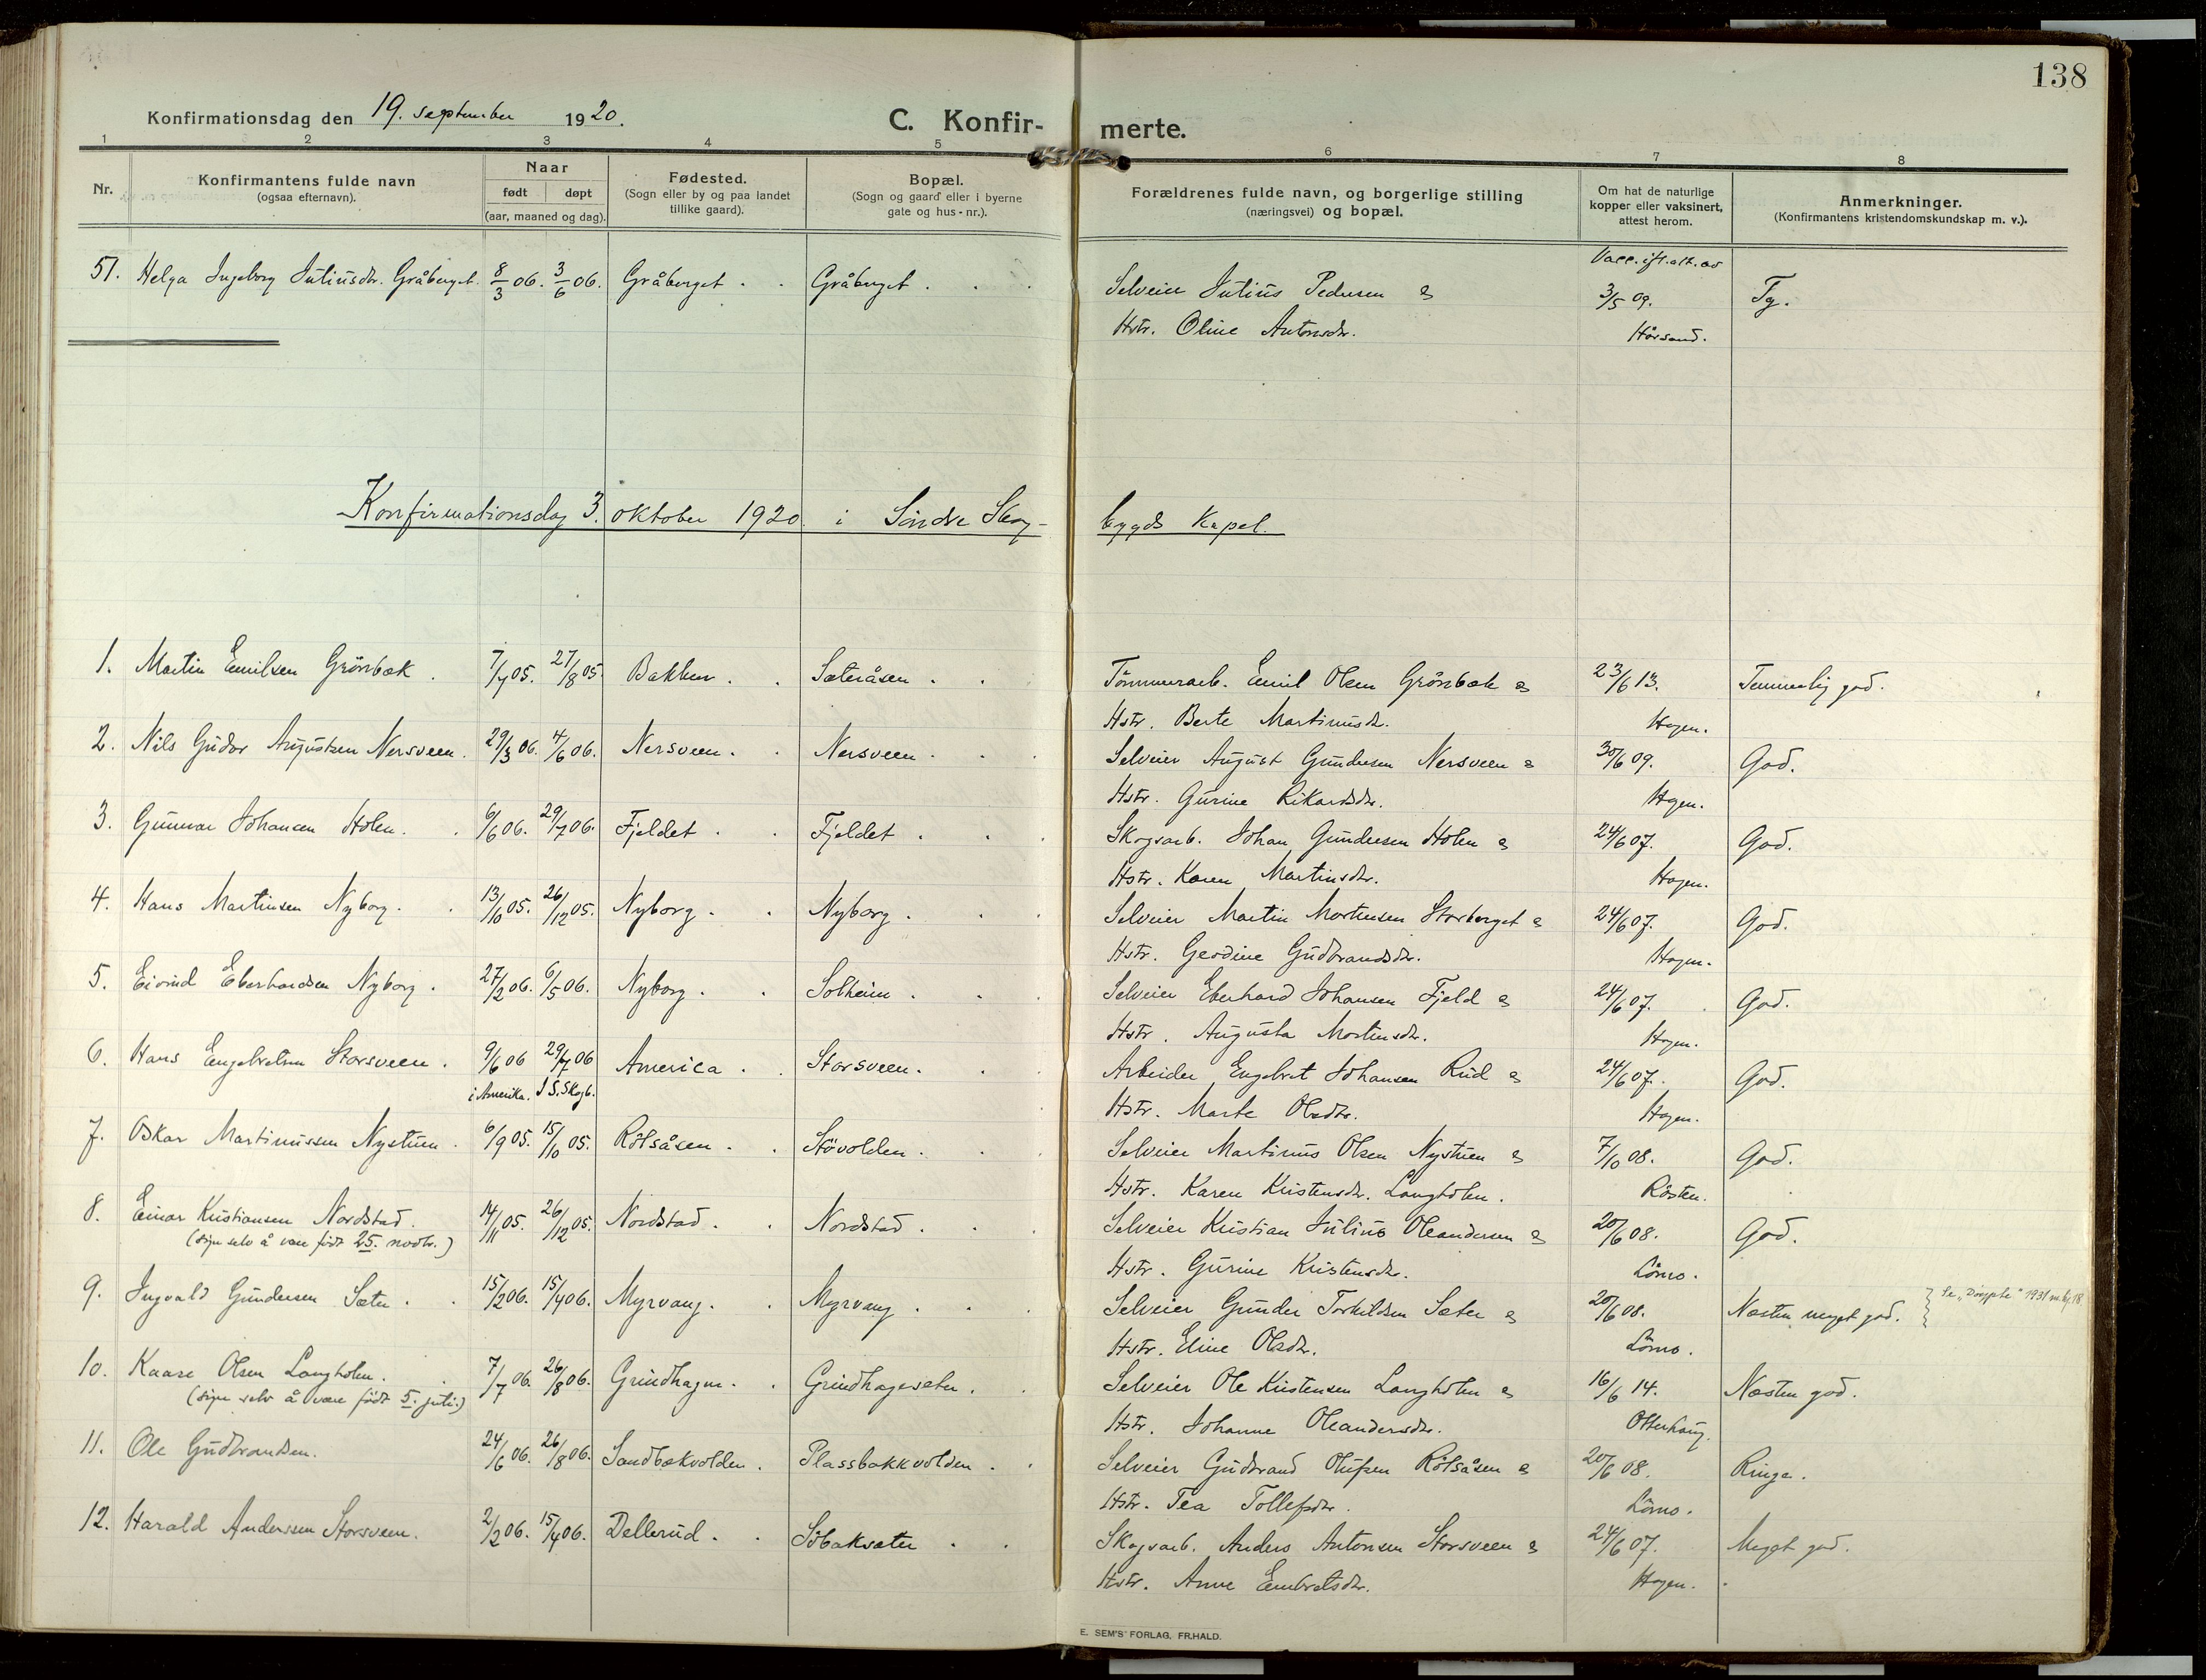 138
Konfirmationsdag den 19. september 1920.
C. Konfir- merte.
1 2 3 4 5 6 7 8
Nr.
Konfirmantens fulde navn
(ogsaa efternavn).
Naar
født døpt
(aar, maaned og dag).
Fødested.
(Sogn eller by og paa landet
tillike gaard).
Bopæl.
(Sogn og gaard eller i byerne
gate og hus-nr.).
Forældrenes fulde navn, og borgerlige stilling
(næringsvei) og bopæl.
Om hat de naturlige
kopper eller vaksinert,
attest herom.
Anmerkninger.
(Konfirmantens kristendomskundskap m. v.).
Vacc. ifl. att. av
51. Helga Ingeborg Juliusdtr. Gråberget. 8/3 06. 3/6 06. Gråberget. Gråberget. Selveier Julius Pedersen & 3/5 09. Tg.
Hstr. Oline Antonsdtr. Hårsand.
Konfirmationsdag 3. oktober 1920 i Søndre Skog- bygds Kapel.
1. Martin Emilsen Grönbæk. 7/7 05. 27/8 05. Bakken. Sæteråsen. Tømmerarb. Emil Olsen Grönbæk & 23/6 13. Temmelig god.
Hstr. Berte Martinusdtr. Hagen.
2. Nils Gudor Augustsen Nersveen. 29/3 06. 4/6 06. Nersveen. Nersveen. Selveier August Gundersen Nersveen & 30/6 09. God.
Hstr. Gurine Rikardsdtr. Hagen.
3. Gunnar Johansen Holen. 6/6 06. 29/7 06. Fjeldet. Fjeldet. Skogsarb. Johan Gundersen Holen & 24/6 07. God.
Hstr. Karen Martinsdtr. Hagen.
4. Hans Martinsen Nyborg. 13/10 05. 26/12 05. Nyborg. Nyborg. Selveier Martin Mortensen Storberget & 24/6 07. God.
Hstr. Gerdine Gudbrandsdtr. Hagen.
5. Eivind Eberhardsen Nyborg. 27/2 06. 6/5 06. Nyborg. Solheim. Selveier Eberhard Johansen Fjeld & 24/6 07. God.
Hstr. Augusta Mortensdtr. Hagen.
6. Hans Engebretsen Storsveen. 9/6 06 29/7 06 America. Storsveen. Arbeider Engebret Johansen Rud & 24/6 07. God.
i Amerika. I S. Skogb. Hstr. Marte Olsdtr. Hagen.
7. Oskar Martinussen Nystuen. 6/9 05. 15/10 05. Rölsåsen. Stövolden. Selveier Martinus Olsen Nystuen & 7/10 08. God.
Hstr. Karen Kristensdtr. Langholen. Rösten.
8. Einar Kristiansen Nordstad. 14/11 05. 26/12 05. Nordstad. Nordstad. Selveier Kristian Julius Oleandersen & 20/6 08. God.
(siger selv å være født 25. novbr.) Hstr. Gurine Kristensdtr. Lömo.
9. Ingvald Gundersen Sæter. 15/2 06. 15/4 06. Myrvang. Myrvang. Selveier Gunder Torkildsen Sæter & 20/6 08. Næsten meget god. } Se "Døypte" 1931 m. kj. 18
Hstr. Eline Olsdtr. Lömo.
10. Kaare Olsen Langholen. 7/7 06. 26/8 06. Grindhagen. Grindhagesæter. Selveier Ole Kristensen Langholen & 16/6 14. Næsten god.
(siger selv å være født 5. juli.) Hstr. Johanne Oleandersdtr. Otterhaug.
11. Ole Gudbrandsen. 24/6 06. 26/8 06. Sandbækvolden. Plassbakkvolden. Selveier Gudbrand Olufsen Rölsåsen & 20/6 08. Ringe.
Hstr. Tea Tollefsdtr. Lömo.
12. Harald Anderssen Storsveen. 2/2 06. 15/4 06. Dellerud. Söbaksæter. Skogsarb. Anders Antonsen Storsveen & 24/6 07. Meget god.
Hstr. Anne Embretsdtr. Hagen.
E. SEM'S FORLAG, FR.HALD.